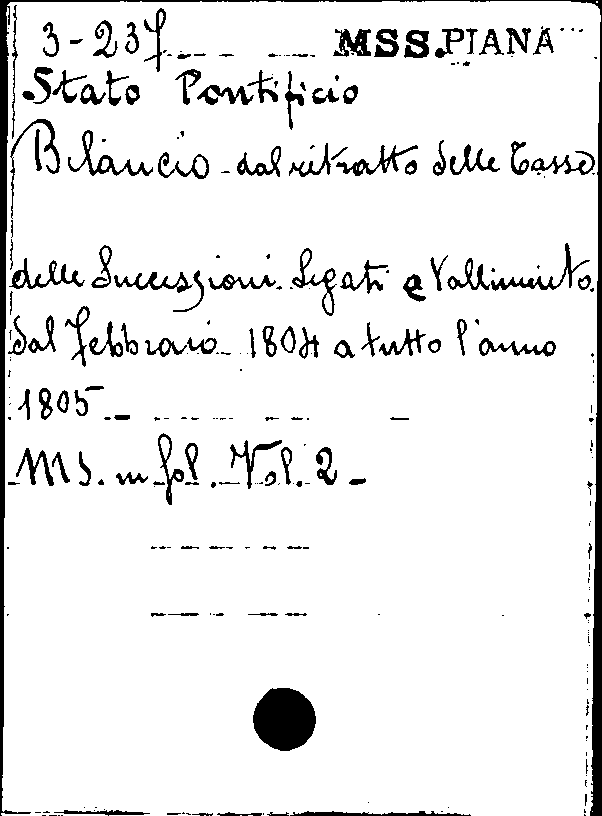 3-237 MSS. PIANA
Stato Pontificio
Bilancio dal ritratto delle Tasse
delle Successioni Legati e Vallimento
dal Febbraio 1804 a tutto l'anno
1805.
MS. in fol. Vol. 2 -